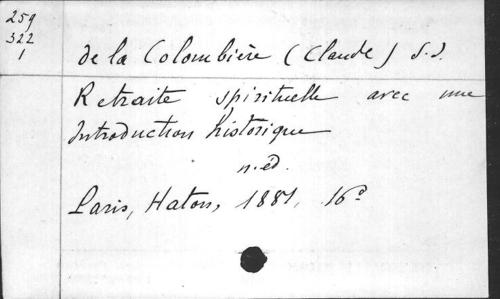 259
322
1
de la Colombière (Claude) S.J.
Retraite spirituelle avec une
Introduction historique
n. éd.
Paris, Haton, 1881, 16º